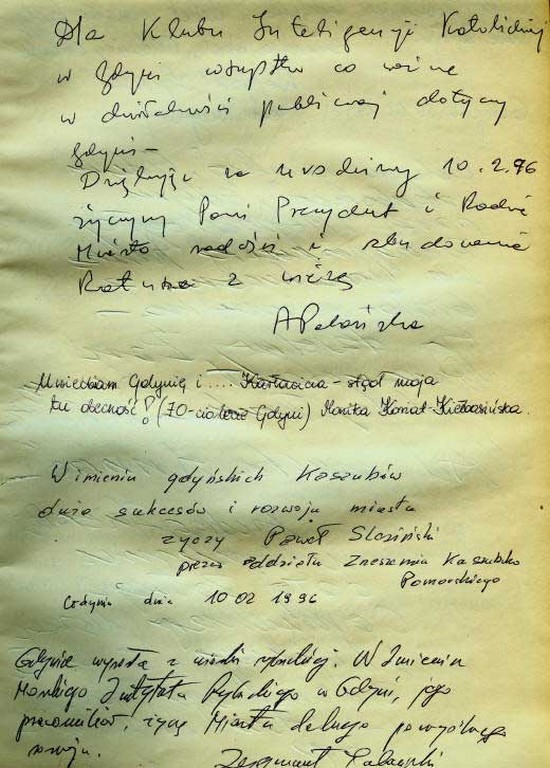 Dla Klubu Inteligencji Katolickiej
w Gdyni wszystko co ważne
w działalności publicznej dotyczy
Gdyni –
Dziękując za urodziny 10.2.96
życzymy Pani Prezydent i Radzie
Miasta radości i zbudowania
Ratusza z wieżą
Uwielbiam Gdynię i .... - stąd moja
tu obecność! (70-ciolecie Gdyni) Monika
W imieniu gdyńskich Kaszubów
dużo sukcesów i rozwoju miasta
życzy Paweł
prezes oddziału Zrzeszenia Kaszubsko
Pomorskiego
Gdynia dnia 10 02 1996
Gdynia wyrosła z wioski rybackiej. W Imieniu
Morskiego Instytutu Rybackiego w Gdyni, jego
pracowników, życzę Miastu dalszego pomyślnego
rozwoju.
Zygmunt